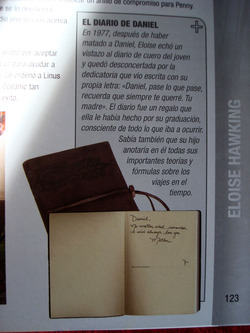 un anillo de compromiso para Penny.
EL DIARIO DE DANIEL
En 1977, después de haber
matado a Daniel, Eloise echó un
vistazo al diario de cuero del joven
y quedó desconcertada por la
dedicatoria que vio escrita con su
propia letra: «Daniel, pase lo que pase,
recuerda que siempre te querré. Tu
madre». El diario fue un regalo que
ella le había hecho por su graduación,
consciente de todo lo que iba a ocurrir.
Sabía también que su hijo
anotaría en él todas sus
importantes teorías y
fórmulas sobre los
viajes en el
tiempo.
por aceptar
ordenó a Linus
Daniel,
No matter what, remember
I will always love you.
Mother
ELOISE HAWKING
123